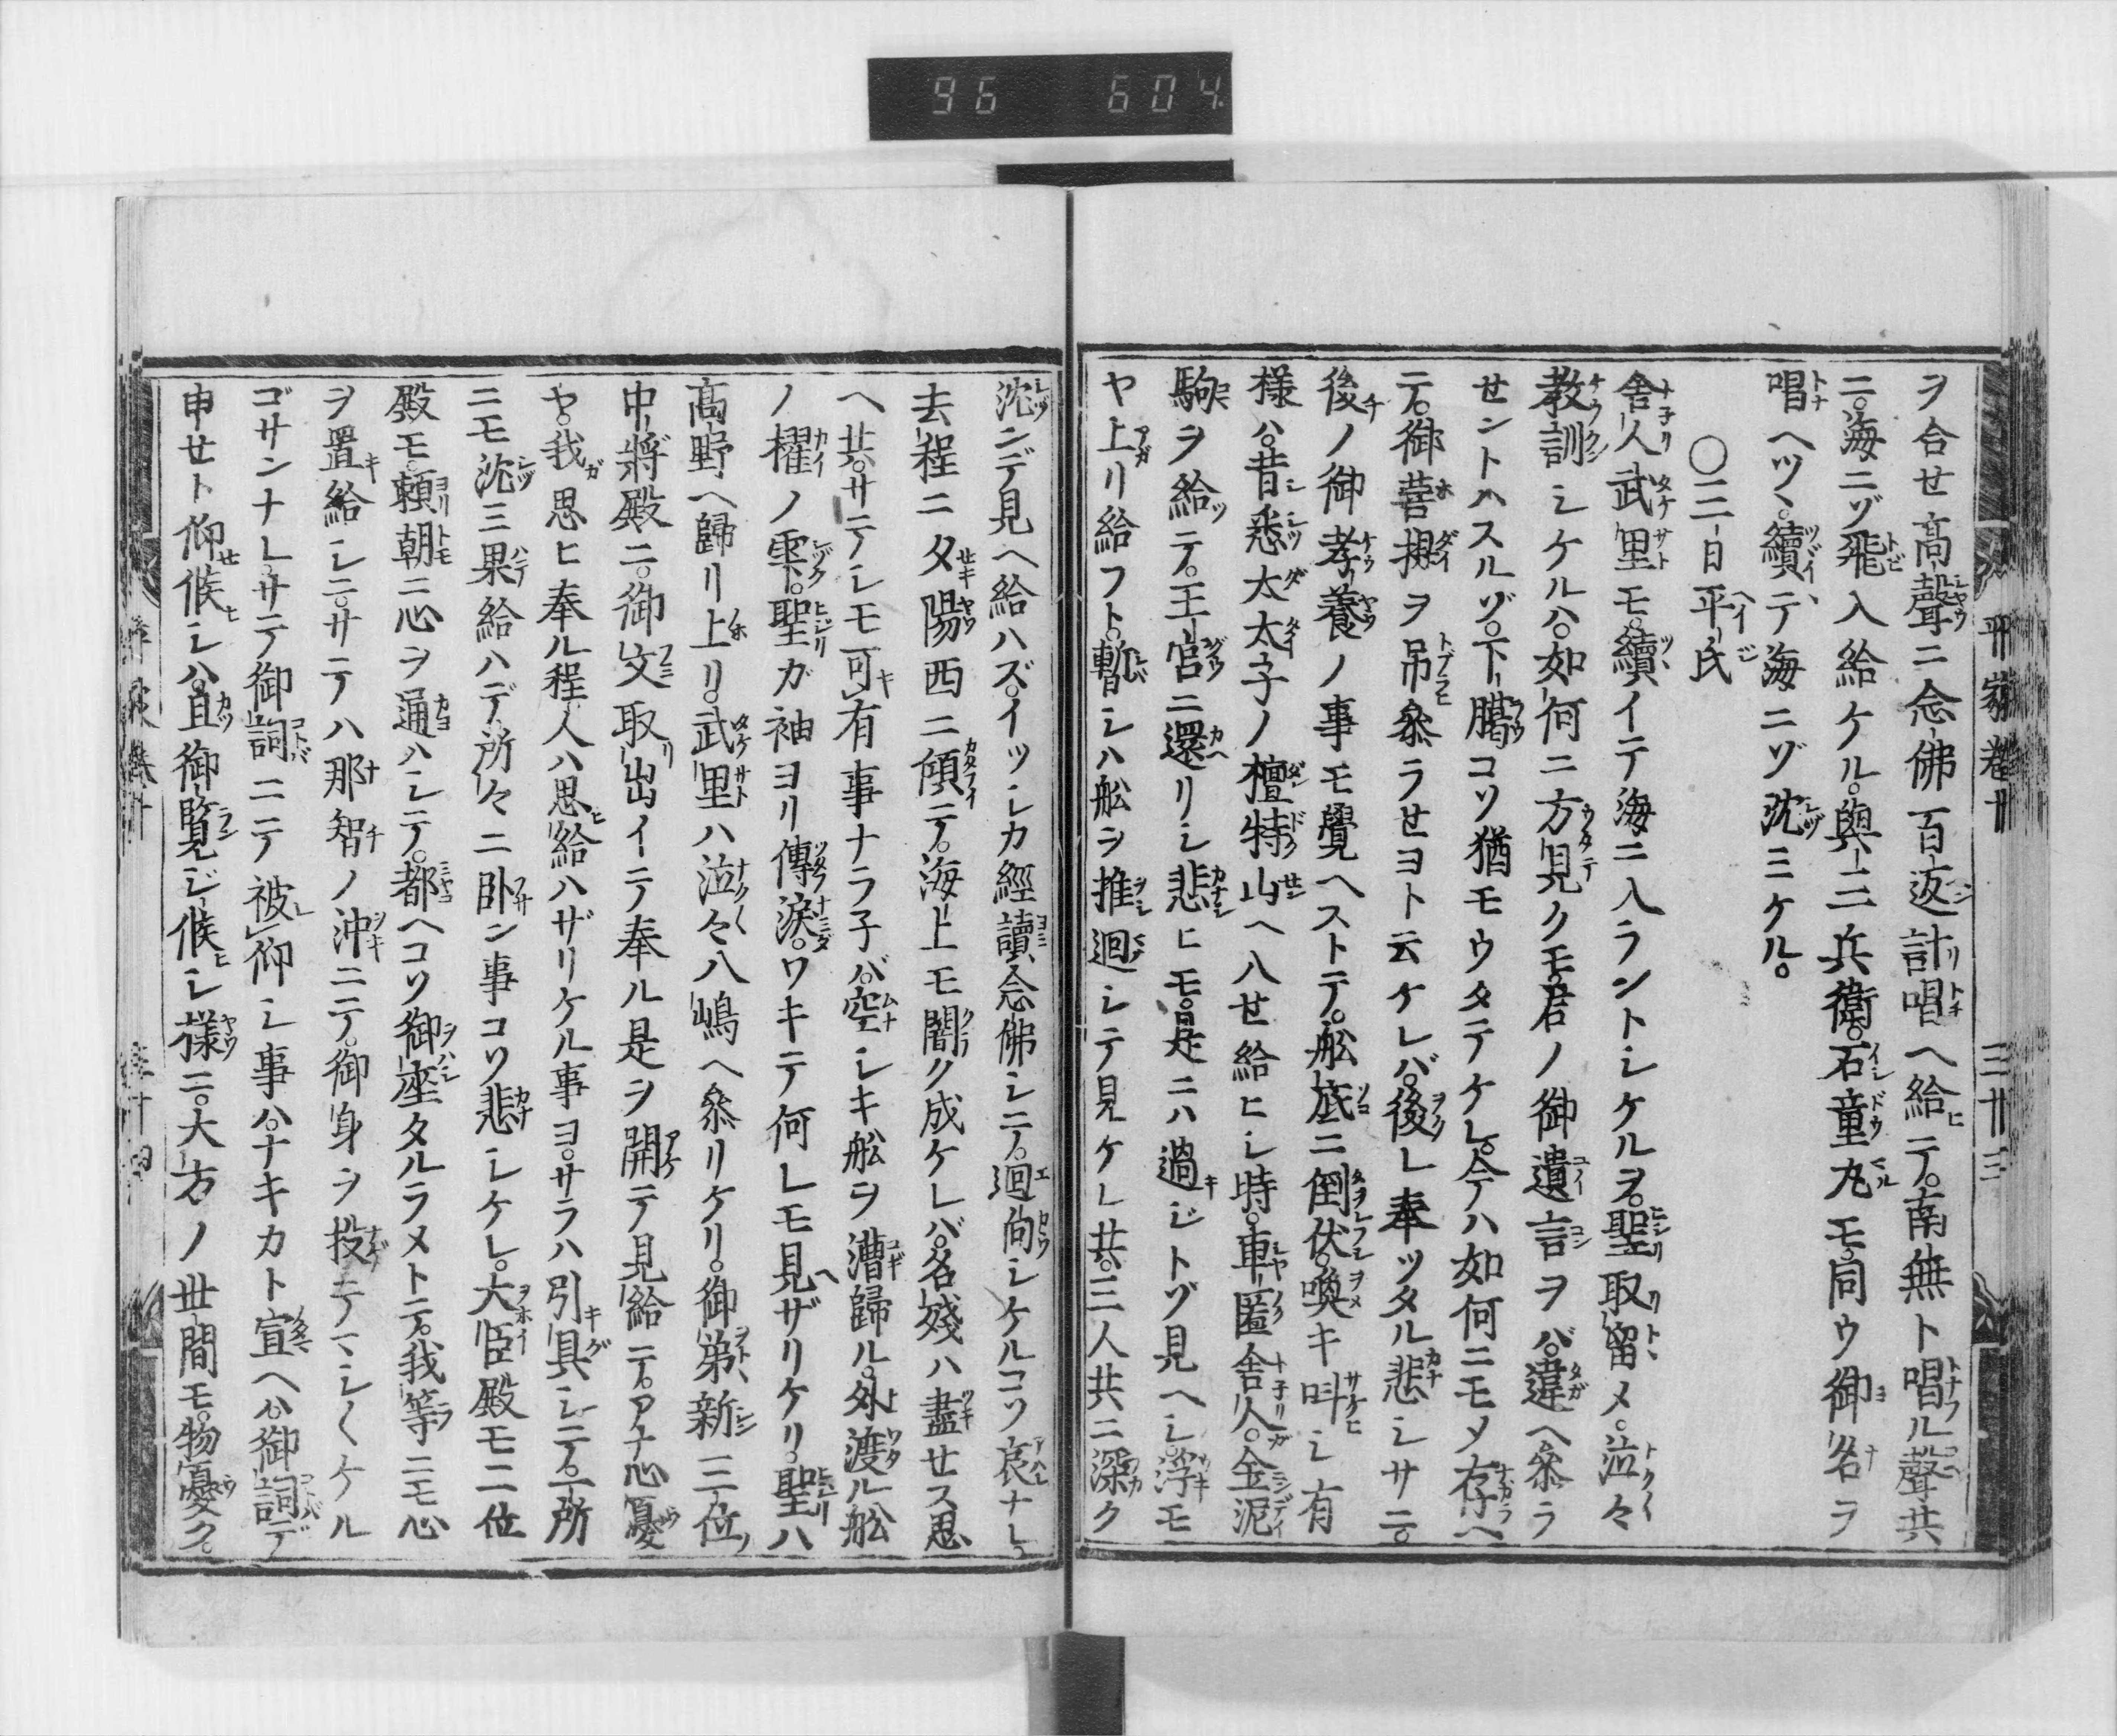 96 604
平家巻十 三十三
ヲ合セ髙聲ニ念佛百返計唱ヘ給テ。南無ト唱ル聲共
ニ。海ニゾ飛入給ケル。與三兵衛。石童丸モ。同ウ御名ヲ
唱ヘツヽ。續テ海ニゾ沈ミケル。
〇三日平氏
舎人武里モ。續イテ海ニ入ラントシケルヲ。聖取留メ。泣々
教訓シケルハ。如何ニ方見クモ。君ノ御遺言ヲバ。違ヘ參ラ
セントハスルゾ。下臈コソ猶モウタテケレ。今ハ如何ニモメ存ヘ
テ。御菩提ヲ吊參ラセヨト云ケレバ。後レ奉ツタル悲シサニ。
後ノ御孝養ノ事モ覺ヘストテ。舩底ニ倒伏。喚キ叫シ有
様ハ。昔悉太太子ノ檀特山ヘ入セ給ヒシ時。車匿舎人。金泥
駒ヲ給テ。王宮ニ還リシ悲ヒモ。是ニハ過ジトゾ見ヘシ。浮モ
ヤ上リ給フト。暫シハ舩ヲ推廻シテ見ケレ共。三人共ニ深ク
沈ンデ見ヘ給ハズ。イツシカ經讀念佛シテ。廻向シケルコソ哀ナレ。
去程ニタ陽西ニ傾テ。海上モ闇ク成ケレバ。名殘ハ盡セス思
ヘ共。サテシモ可有事ナラ子バ。空シキ舩ヲ漕歸ル。外渡ル舩
ノ櫂ノ雫。聖ガ袖ヨリ傳淚。ワキテ何レモ見ザリケリ。聖ハ
髙野ヘ歸リ上リ。武里ハ泣々八嶋ヘ參リケリ。御弟新三位ノ
中將殿ニ。御文取出イテ奉ル是ヲ開テ見給テ。アナ心憂
ヤ。我思ヒ奉ル程人ハ思給ハザリケル事ヨ。サラハ引具シテ。一所
ニモ沈三果給ハデ。所々ニ卧ン事コソ悲シケレ。大臣殿モ二位
殿モ。頼朝ニ心ヲ通ハシテ。都ヘコソ御座タルラメトテ。我等ニモ心
ヲ置給シニ。サテハ那智ノ沖ニテ。御身ヲ投テマシ〱ケル
ゴサンナレ。サテ御詞ニテ被仰シ事ハ。ナキカト宣ヘハ。御詞デ
申セト仰候シハ。且御覧ジ候シ様ニ。大方ノ世間モ。物憂ク。